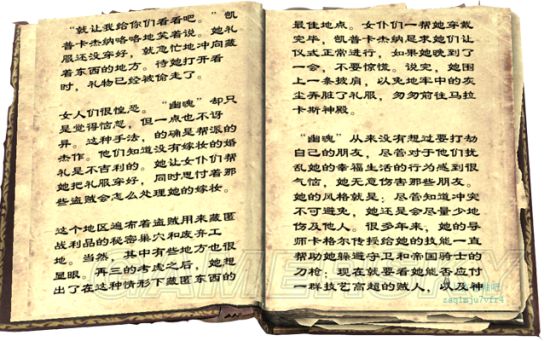 “就让我给你们看看吧。”凯
普卡杰纳咯咯地笑着说。她礼
服还没穿好，就急忙地冲向藏
着东西的地方。待她打开看
时，礼物已经被偷走了。
女人们很惶恐。“幽魂”却只
是觉得恼忿，但一点也不讶
异。这种手法，的确是帮派的
杰作。他们知道没有嫁妆的婚
礼是不吉利的。她让女仆们帮
她把礼服穿好，同时思忖着那
些盗贼会怎么处理她的嫁妆。
这个地区遍布着盗贼用来藏匿
战利品的秘密巢穴和废弃工
地。当然，其中有些地方也很
显眼。再三的考虑之后，她想
出了在这种情形下藏匿东西的
最佳地点。女仆们一帮她穿戴
完毕，凯普卡杰纳恳求她们让
仪式正常进行，如果她晚到了
一会，不要惊慌。说完，她围
上一条披肩，以免地牢中的灰
尘弄脏了礼服，匆匆前往马拉
卡斯神殿。
“幽魂”从来没有想过要打劫
自己的朋友，尽管对于他们扰
乱她的幸福生活的行为感到很
气恼，她无意伤害那些朋友。
她的风格就是：尽管知道冲突
不可避免，她还是会尽量少地
伤及他人。很多年来，她的导
师卡格尔传授给她的技能一直
帮助她躲避守卫和帝国骑士的
刀枪；现在就要看她能否应付
一群技艺高超的贼人，以及神
GAMERSKY
zaqtmju7vfr4